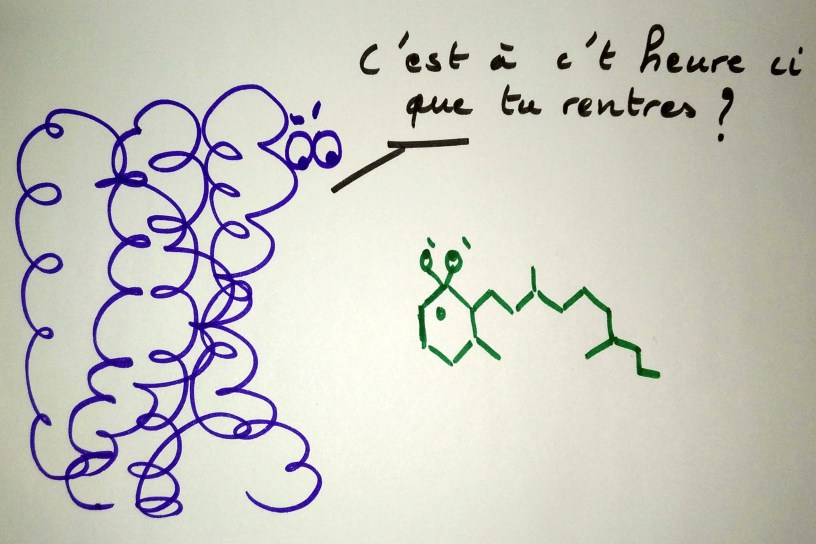 C'est à c't heure ci
que tu rentres ?